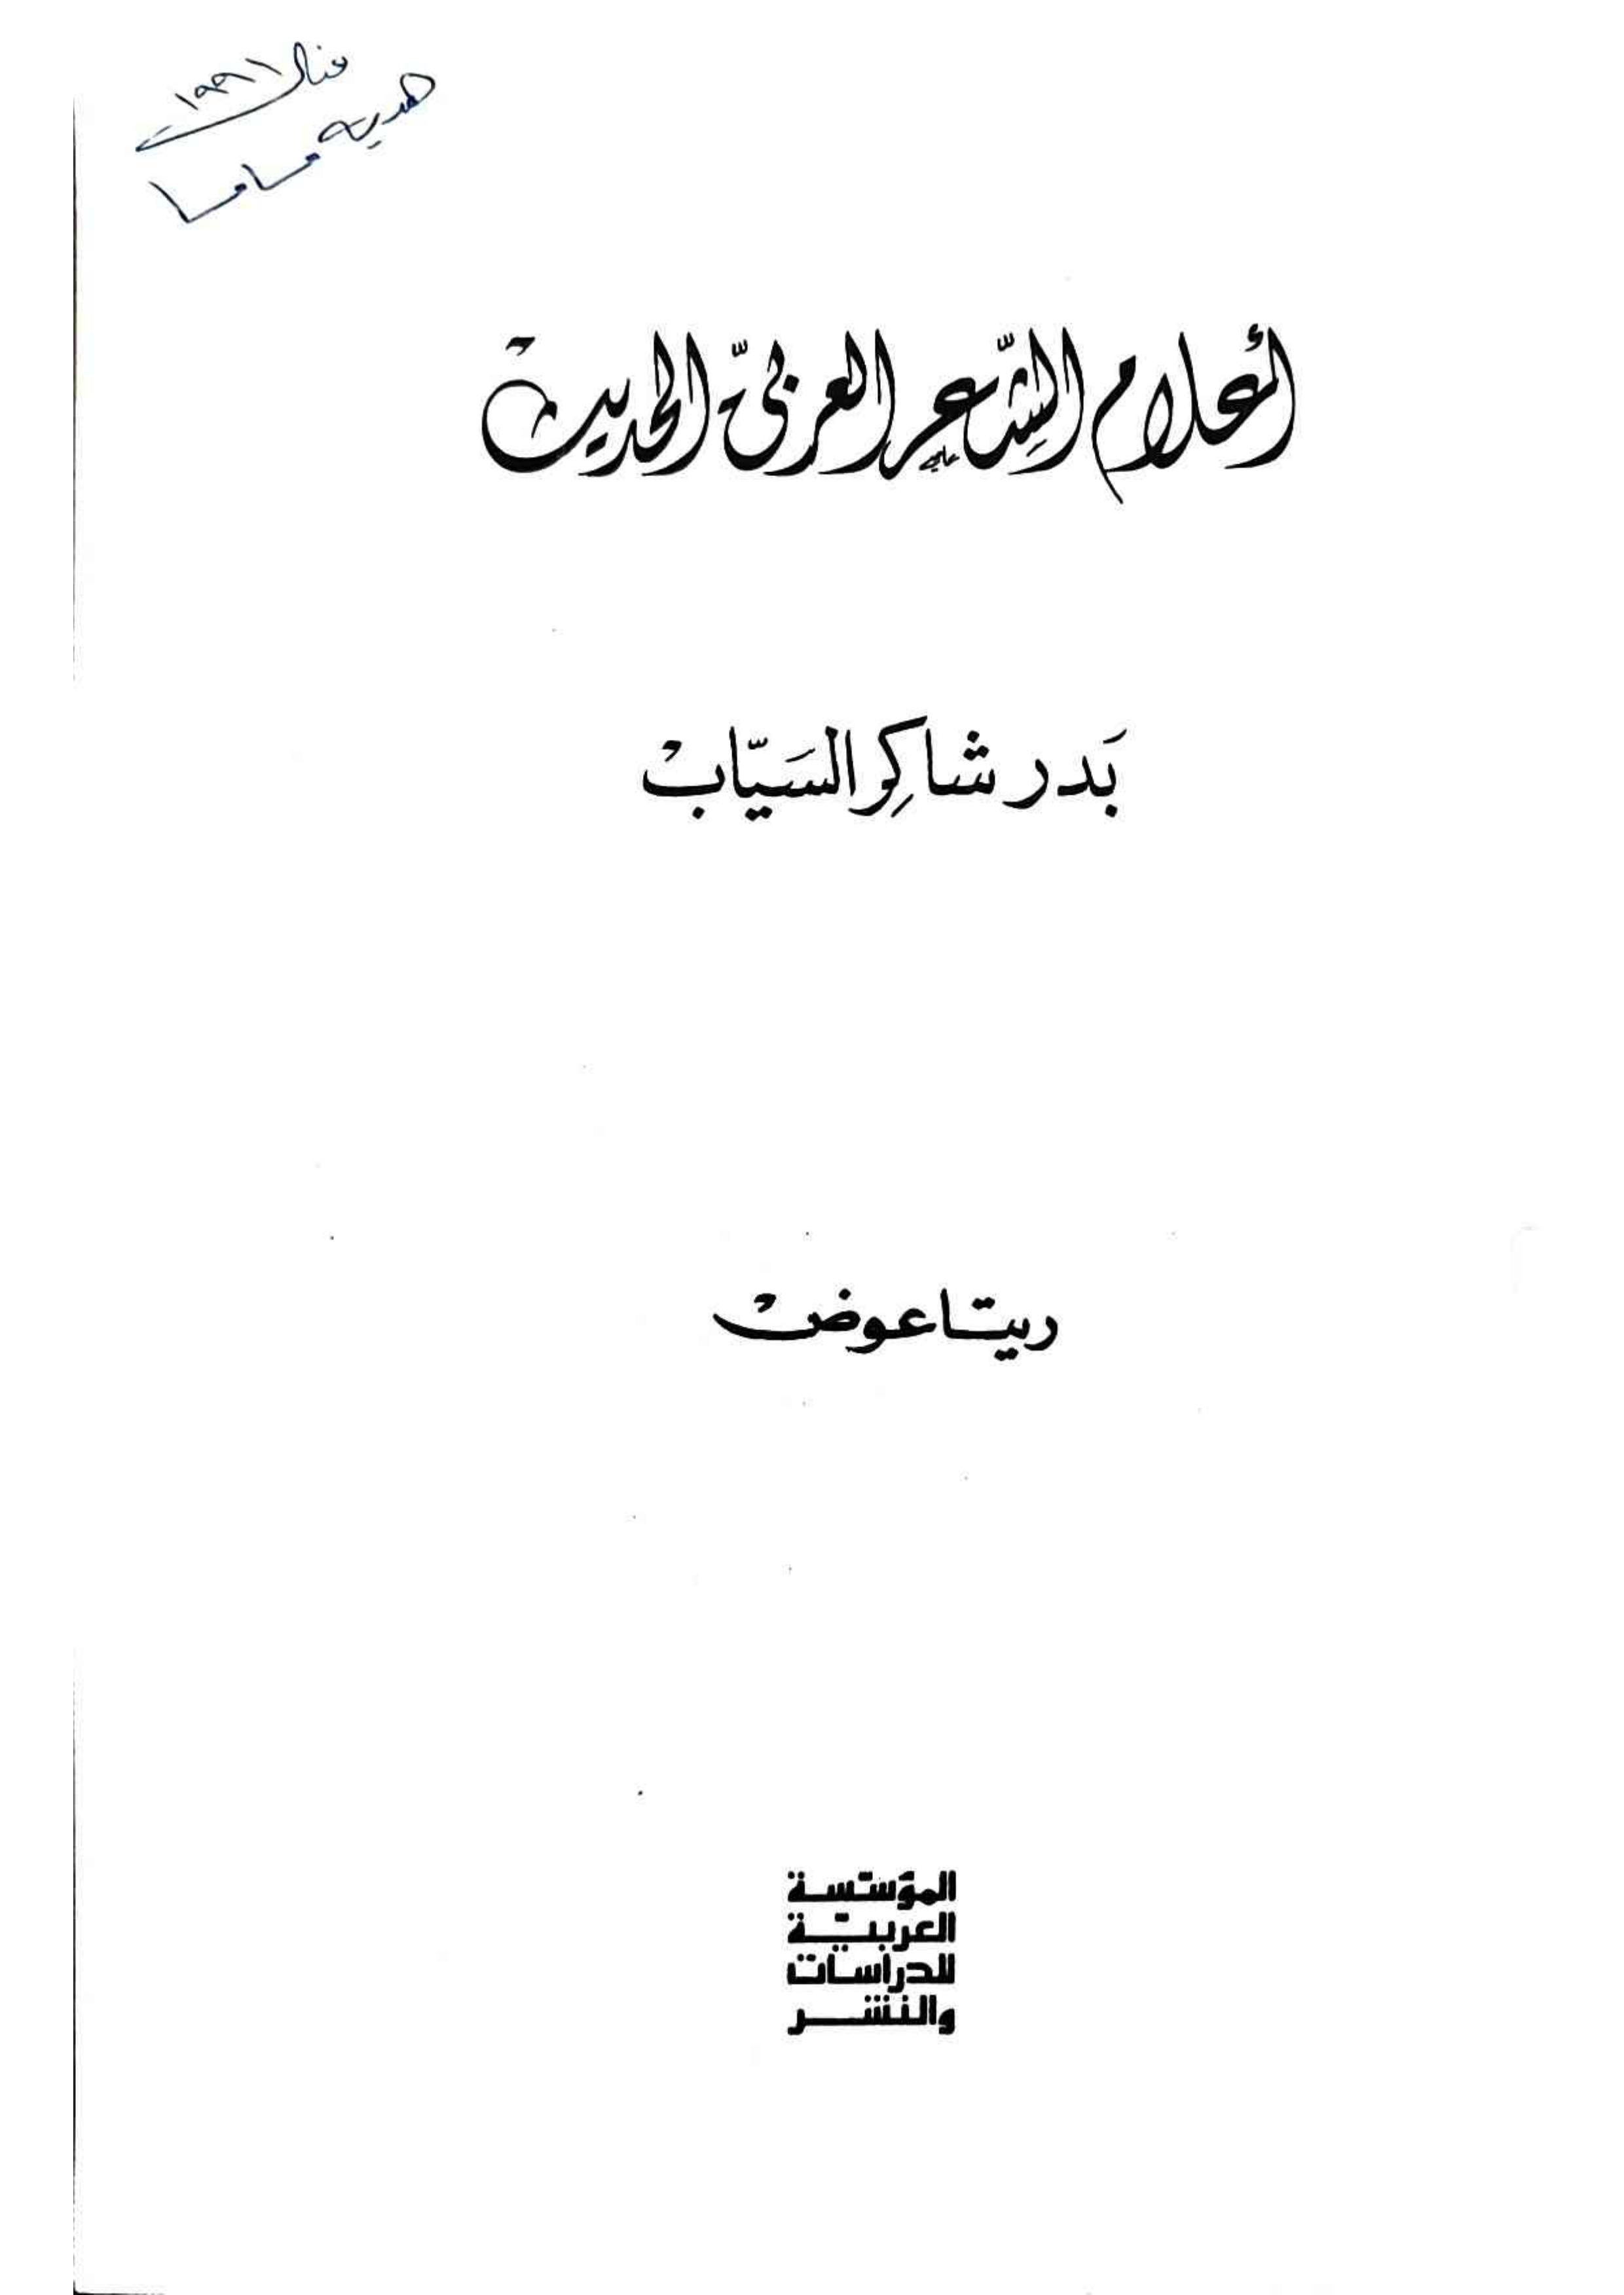 منال ١٩٩١
هدية ماما
أعلام الشّعر العربيّ الحديث
بَدر شاكِر السَيّاب
ريتا عوض
المؤسّسة
العربيّة
للدراسات
والنشر